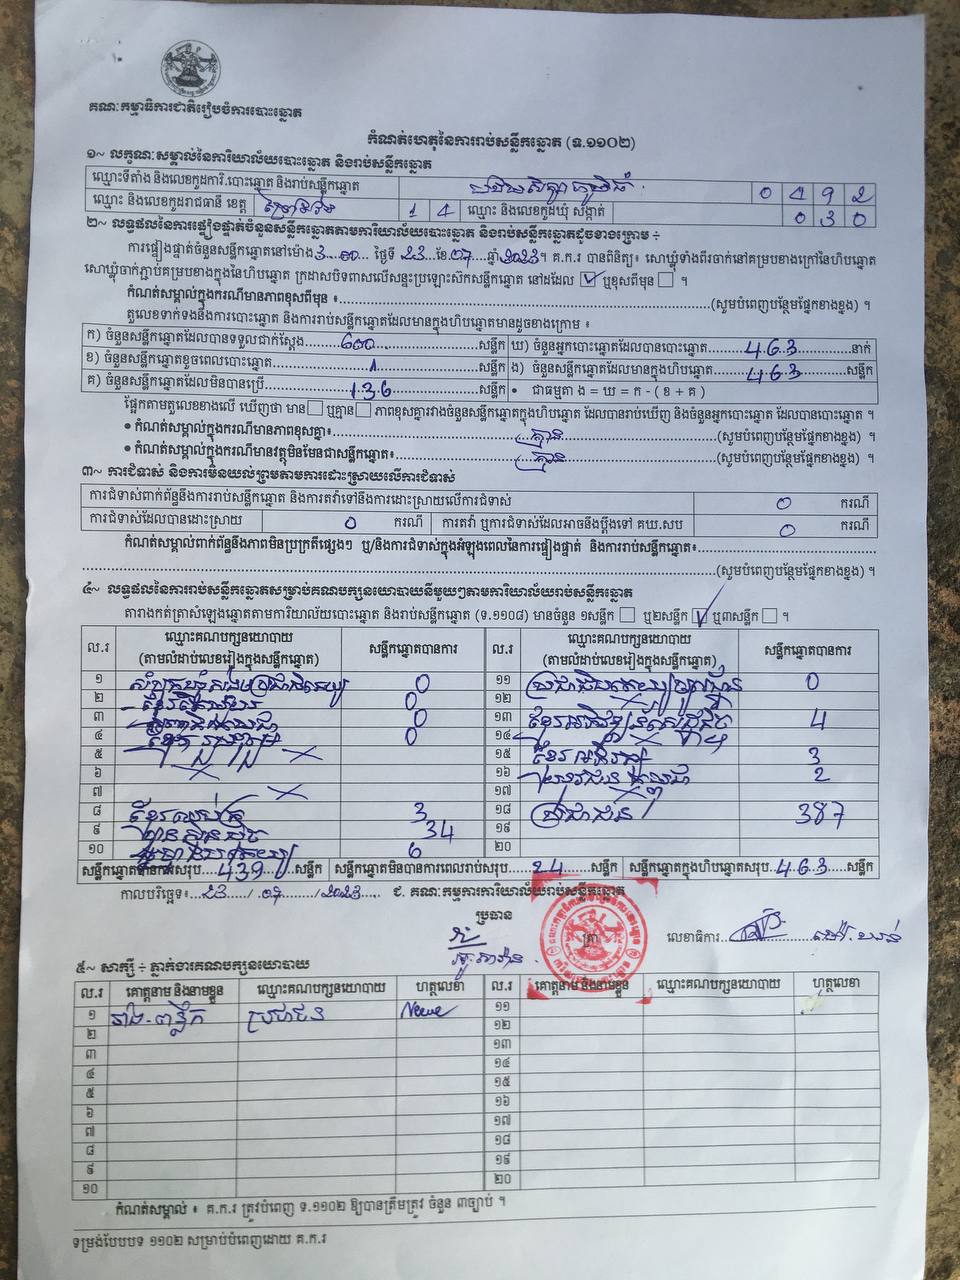 គណៈកម្មាធិការជាតិរៀបចំការបោះឆ្នោត
កំណត់ហេតុនៃការរាប់សន្លឹកឆ្នោត (ទ.១១០២)
១~ លក្ខណៈសម្គាល់នៃការិយាល័យបោះឆ្នោត និងរាប់សន្លឹកឆ្នោត
ឈ្មោះទីតាំង និងលេខកូដការិ.បោះឆ្នោត និងរាប់សន្លឹកឆ្នោត 0 4 9 2
ឈ្មោះ និងលេខកូដរាជធានី ខេត្ត ព្រៃវែង 1 4 ឈ្មោះ និងលេខកូដឃុំ សង្កាត់ 0 3 0
២~ លទ្ធផលនៃការផ្ទៀងផ្ទាត់ចំនួនសន្លឹកឆ្នោតតាមការិយាល័យបោះឆ្នោត និងរាប់សន្លឹកឆ្នោតដូចខាងក្រោម ÷
ការផ្ទៀងផ្ទាត់ចំនួនសន្លឹកឆ្នោតនៅម៉ោង 3.00 ថ្ងៃទី 23 ខែ 07 ឆ្នាំ 2023។ គ.ក.រ បានពិនិត្យ៖ សោឃ្មុំទាំងពីរចាក់នៅគម្របខាងក្រៅនៃហិបឆ្នោត
សោឃ្មុំចាក់ភ្ជាប់គម្របខាងក្នុងនៃហិបឆ្នោត ក្រដាសបិទពាសលើសន្ទះប្រឡោះស៊កសន្លឹកឆ្នោត នៅដដែល ✓ ឬខុសពីមុន ។
កំណត់សម្គាល់ក្នុងករណីមានភាពខុសពីមុន ៖ (សូមបំពេញបន្ថែមផ្នែកខាងខ្នង) ។
តួលេខទាក់ទងនឹងការបោះឆ្នោត និងការរាប់សន្លឹកឆ្នោតដែលមានក្នុងហិបឆ្នោតមានដូចខាងក្រោម ៖
ក) ចំនួនសន្លឹកឆ្នោតដែលបានទទួលជាក់ស្តែង 600 សន្លឹក ឃ) ចំនួនអ្នកបោះឆ្នោតដែលបានបោះឆ្នោត 463 នាក់
ខ) ចំនួនសន្លឹកឆ្នោតខូចពេលបោះឆ្នោត 1 សន្លឹក ង) ចំនួនសន្លឹកឆ្នោតដែលមានក្នុងហិបឆ្នោត 463 សន្លឹក
គ) ចំនួនសន្លឹកឆ្នោតដែលមិនបានប្រើ 136 សន្លឹក • ជាធម្មតា ង = ឃ = ក - ( ខ + គ )
ផ្អែកតាមតួលេខខាងលើ ឃើញថា មាន ឬគ្មាន ភាពខុសគ្នារវាងចំនួនសន្លឹកឆ្នោតក្នុងហិបឆ្នោត ដែលបានរាប់ឃើញ និងចំនួនអ្នកបោះឆ្នោត ដែលបានបោះឆ្នោត ។
• កំណត់សម្គាល់ក្នុងករណីមានភាពខុសគ្នា៖ គ្មាន (សូមបំពេញបន្ថែមផ្នែកខាងខ្នង) ។
• កំណត់សម្គាល់ក្នុងករណីមានវត្ថុមិនមែនជាសន្លឹកឆ្នោត៖ គ្មាន (សូមបំពេញបន្ថែមផ្នែកខាងខ្នង) ។
៣~ ការជំទាស់ និងការមិនយល់ព្រមតាមការដោះស្រាយលើការជំទាស់
ការជំទាស់ពាក់ព័ន្ធនឹងការរាប់សន្លឹកឆ្នោត និងការតវ៉ាទៅនឹងការដោះស្រាយលើការជំទាស់ 0 ករណី
ការជំទាស់ដែលបានដោះស្រាយ 0 ករណី ការតវ៉ា ឬការជំទាស់ដែលអាចនឹងប្តឹងទៅ គឃ.សប 0 ករណី
កំណត់សម្គាល់ពាក់ព័ន្ធនឹងភាពមិនប្រក្រតីផ្សេងៗ ឬ/និងការជំទាស់ក្នុងអំឡុងពេលនៃការផ្ទៀងផ្ទាត់ និងការរាប់សន្លឹកឆ្នោត៖
(សូមបំពេញបន្ថែមផ្នែកខាងខ្នង) ។
៤~ លទ្ធផលនៃការរាប់សន្លឹកឆ្នោតសម្រាប់គណបក្សនយោបាយនីមួយៗតាមការិយាល័យរាប់សន្លឹកឆ្នោត
តារាងកត់ត្រាសំឡេងឆ្នោតតាមការិយាល័យបោះឆ្នោត និងរាប់សន្លឹកឆ្នោត (ទ.១១០៨) មានចំនួន ១សន្លឹក ឬ២សន្លឹក ✓ ឬ៣សន្លឹក ។
ល.រ ឈ្មោះគណបក្សនយោបាយ (តាមលំដាប់លេខរៀងក្នុងសន្លឹកឆ្នោត) សន្លឹកឆ្នោតបានការ ល.រ ឈ្មោះគណបក្សនយោបាយ (តាមលំដាប់លេខរៀងក្នុងសន្លឹកឆ្នោត) សន្លឹកឆ្នោតបានការ
១ 0 ១១ 0
២ 0 ១២
៣ 0 ១៣ 4
៤ 0 ១៤
៥ ១៥ 3
៦ ១៦ 2
៧ ១៧
៨ 3 ១៨ ប្រជាជន 387
៩ 34 ១៩
១០ 6 ២០
សន្លឹកឆ្នោតបានការសរុប 439 សន្លឹក សន្លឹកឆ្នោតមិនបានការពេលរាប់សរុប 24 សន្លឹក សន្លឹកឆ្នោតក្នុងហិបឆ្នោតសរុប 463 សន្លឹក
កាលបរិច្ឆេទ៖ 23 / 07 / 2023 ជ. គណៈកម្មការការិយាល័យរាប់សន្លឹកឆ្នោត
ប្រធាន
ត្រា លេខាធិការ
៥~ សាក្សី ÷ ភ្នាក់ងារគណបក្សនយោបាយ
ល.រ គោត្តនាម និងនាមខ្លួន ឈ្មោះគណបក្សនយោបាយ ហត្ថលេខា ល.រ គោត្តនាម និងនាមខ្លួន ឈ្មោះគណបក្សនយោបាយ ហត្ថលេខា
១ ប្រជាជន ១១
២ ១២
៣ ១៣
៤ ១៤
៥ ១៥
៦ ១៦
៧ ១៧
៨ ១៨
៩ ១៩
១០ ២០
កំណត់សម្គាល់ ៖ គ.ក.រ ត្រូវបំពេញ ទ.១១០២ ឱ្យបានត្រឹមត្រូវ ចំនួន ៣ច្បាប់ ។
ទម្រង់បែបបទ ១១០២ សម្រាប់បំពេញដោយ គ.ក.រ